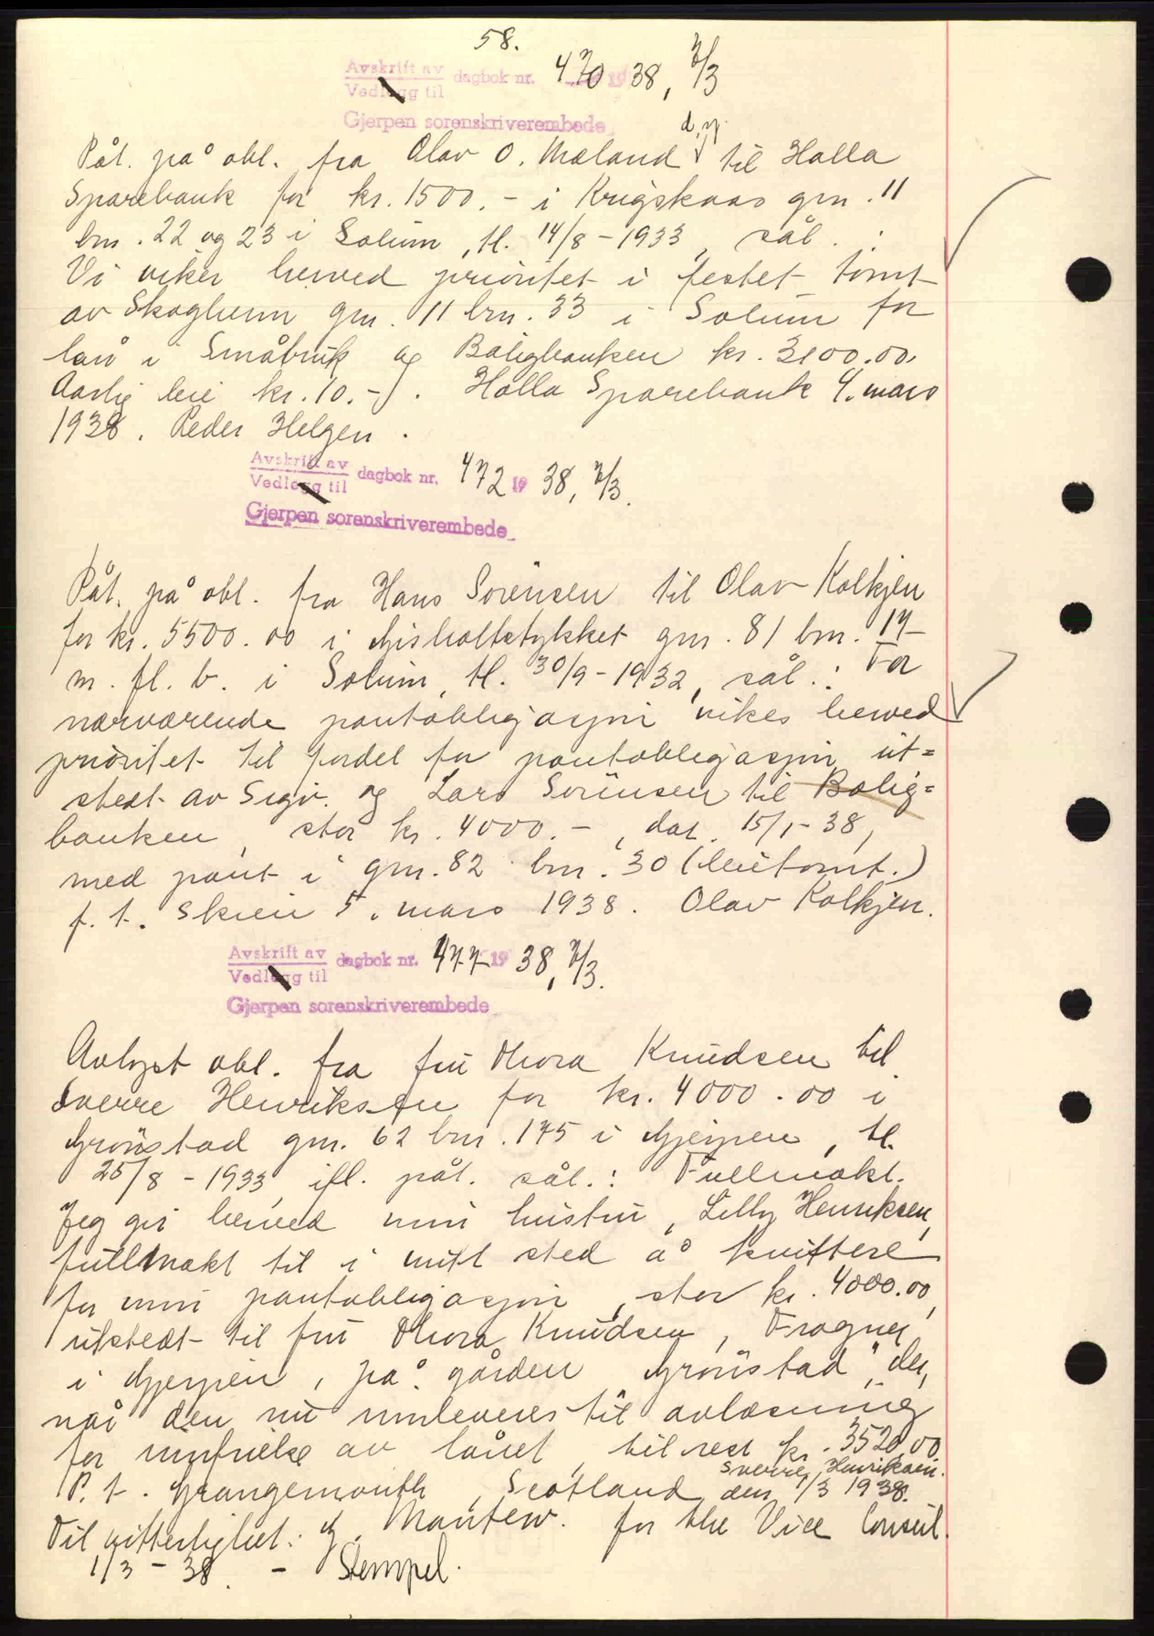 58.
Avskrift av
Vedlegg til dagbok nr. 470 1938, 7/3
Gjerpen sorenskriverembede
d.y.
Påt. på obl. fra Olav O. Mæland til Holla
Sparebank for kr. 1500.- i Krigskaas gnr. 11
bnr. 22 og 23 i Solum, tl. 14/8-1933, sål.:
Vi viker herved prioritet i festet tomt
av Skogheim gnr. 11 bnr. 33 i Solum for
lån i Småbruk og Boligbanken kr. 3100.00.
Aarlig leie kr. 10.-. Holla Sparebank 4. mars
1938. Peder Helgen.
Avskrift av
Vedlegg til dagbok nr. 472 1938, 7/3.
Gjerpen sorenskriverembede
Påt. på obl. fra Hans Sørensen til Olav Kolkjen
for kr. 5500.00 i Gisholtstykket gnr. 81 bnr. 14
m. fl. b. i Solum, tl. 30/9-1932, sål.: For
nærværende pantobligasjon vikes herved
prioritet til fordel for pantobligasjon ut=
stedt av Sigv. og Lars Sørensen til Bolig=
banken, stor kr. 4000.-, dat. 15/1-38,
med pant i gnr. 82 bnr. 30 (leietomt.)
p. t. Skien 5. mars 1938. Olav Kolkjen.
Avskrift av
Vedlegg til dagbok nr. 477 1938, 7/3.
Gjerpen sorenskriverembede
Avlyst obl. fra fru Thora Knudsen til
Sverre Henriksen for kr. 4000.00 i
Grønstad gnr. 62 bnr. 175 i Gjerpen, tl.
25/8-1933, ifl. påt. sål.: Fullmakt.
Jeg gir herved min hustru, Lilly Henriksen,
fullmakt til i mitt sted å kvittere
for min pantobligasjon, stor kr. 4000.00,
utstedt til fru Thora Knudsen, Frogner
i Gjerpen, på gården "Grønstad" der,
når den nu innleveres til avlæsning
for innfrielse av lånet, til rest kr. 3520.00
Sverre Henriksen.
P. t. Grangemouth, Scotland den 1/3 1938.
Til vitterlighet: Manten. for the Vice Consul.
1/3-38. - Stempel.